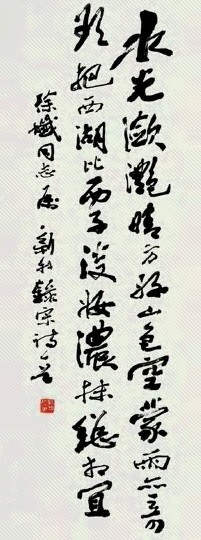 水光潋滟晴方好山色空蒙雨亦奇
欲把西湖比西子淡妆浓抹总相宜
徐㦤同志属 新我录宋诗之一